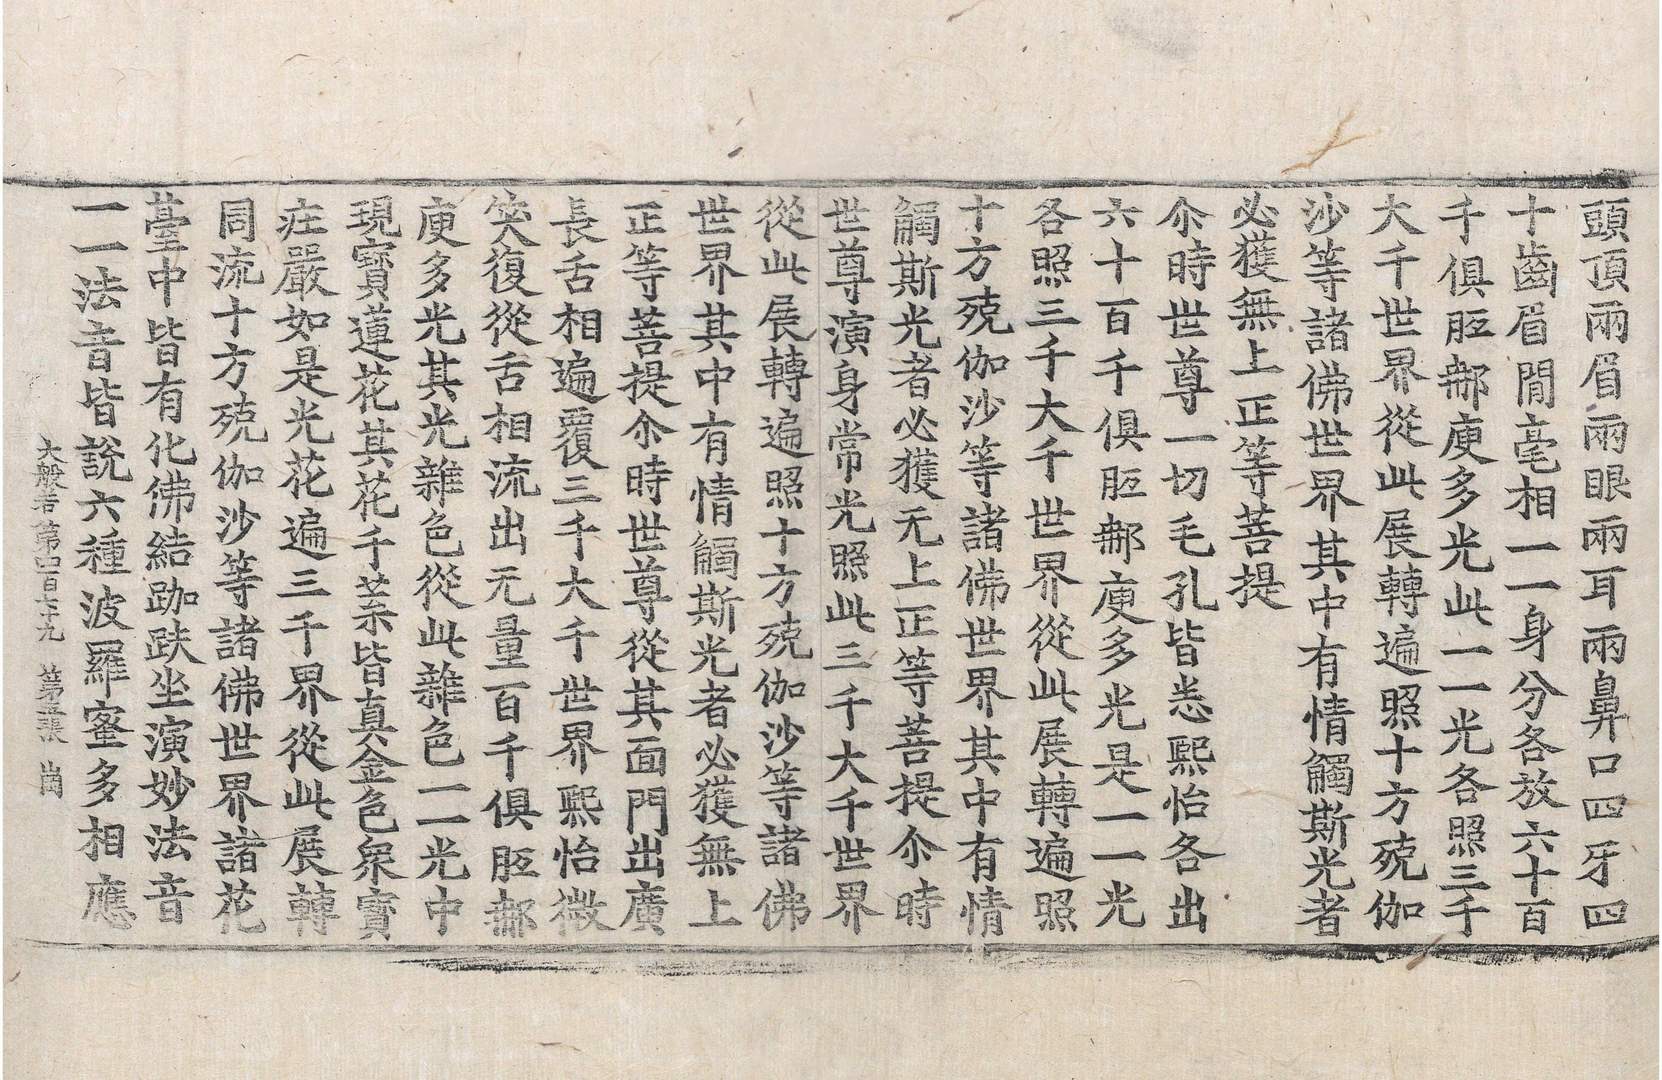 頭頂兩眉兩眼兩耳兩鼻口四牙四
十齒眉閒毫相一一身分各放六十百
千俱胝那庾多光此一一光各照三千
大千世界從此展轉遍照十方殑伽
沙等諸佛世界其中有情觸斯光者
必獲無上正等菩提
尒時世尊一切毛孔皆悉熙怡各出
六十百千俱胝那庾多光是一一光
各照三千大千世界從此展轉遍照
十方殑伽沙等諸佛世界其中有情
觸斯光者必獲无上正等菩提尒時
世尊演身常光照此三千大千世界
從此展轉遍照十方殑伽沙等諸佛
世界其中有情觸斯光者必獲無上
正等菩提尒時世尊從其面門出廣
長舌相遍覆三千大千世界熙怡微
笑復從舌相流出无量百千俱胝那
庾多光其光雜色從此雜色一一光中
現寶蓮花其花千葉皆真金色衆寶
莊嚴如是光花遍三千界從此展轉
同流十方殑伽沙等諸佛世界諸花
臺中皆有化佛結跏趺坐演妙法音
一一法音皆說六種波羅蜜多相應
大般若第四百六十九 第五張 崗